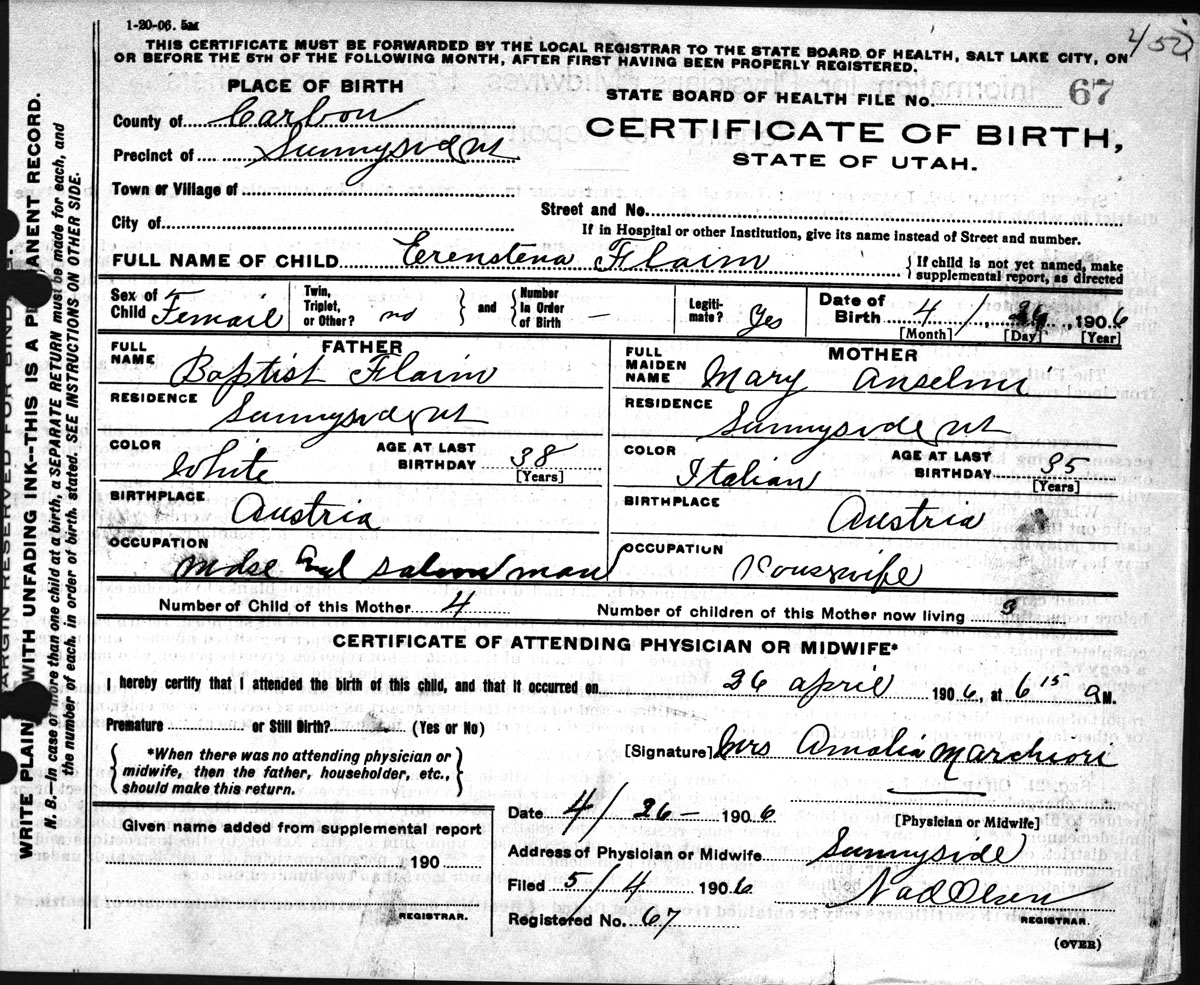 1-20-06. 5M
450
THIS CERTIFICATE MUST BE FORWARDED BY THE LOCAL REGISTRAR TO THE STATE BOARD OF HEALTH, SALT LAKE CITY, ON
OR BEFORE THE 5TH OF THE FOLLOWING MONTH, AFTER FIRST HAVING BEEN PROPERLY REGISTERED.
PLACE OF BIRTH
STATE BOARD OF HEALTH FILE No. 67
County of Carbon
CERTIFICATE OF BIRTH,
Precinct of Sunnyside ut
STATE OF UTAH.
Town or Village of
Street and No.
City of
If in Hospital or other Institution, give its name instead of Street and number.
FULL NAME OF CHILD Erenstena Flaim
{If child is not yet named, make supplemental report, as directed
Sex of Child Femail
Twin, Triplet, or Other? no } and { Number In Order of Birth —
Legitimate? Yes
Date of Birth 4 / 26, 1906
[Month] [Day] [Year]
FATHER
FULL NAME Baptist Flaim
RESIDENCE Sunnyside ut
COLOR White
AGE AT LAST BIRTHDAY 38 [Years]
BIRTHPLACE Austria
OCCUPATION Mdse and saloon man
MOTHER
FULL MAIDEN NAME Mary Anselmi
RESIDENCE Sunnyside ut
COLOR Italian
AGE AT LAST BIRTHDAY 35 [Years]
BIRTHPLACE Austria
OCCUPATION Housewife
Number of Child of this Mother 4
Number of children of this Mother now living 3
CERTIFICATE OF ATTENDING PHYSICIAN OR MIDWIFE*
I hereby certify that I attended the birth of this child, and that it occurred on 26 april 1906, at 6 15 a M.
Premature or Still Birth? (Yes or No)
{*When there was no attending physician or
midwife, then the father, householder, etc.,
should make this return.}
[Signature] Mrs Amalia Marchiori
[Physician or Midwife]
Date 4/26 — 1906
Address of Physician or Midwife Sunnyside
Given name added from supplemental report
190
REGISTRAR.
Filed 5/4 1906
Registered No. 67
REGISTRAR.
(OVER)
MARGIN RESERVED FOR BINDING.
WRITE PLAINLY WITH UNFADING INK--THIS IS A PERMANENT RECORD.
N. B.—In case of more than one child at a birth, a SEPARATE RETURN must be made for each, and
the number of each, in order of birth, stated. SEE INSTRUCTIONS ON OTHER SIDE.